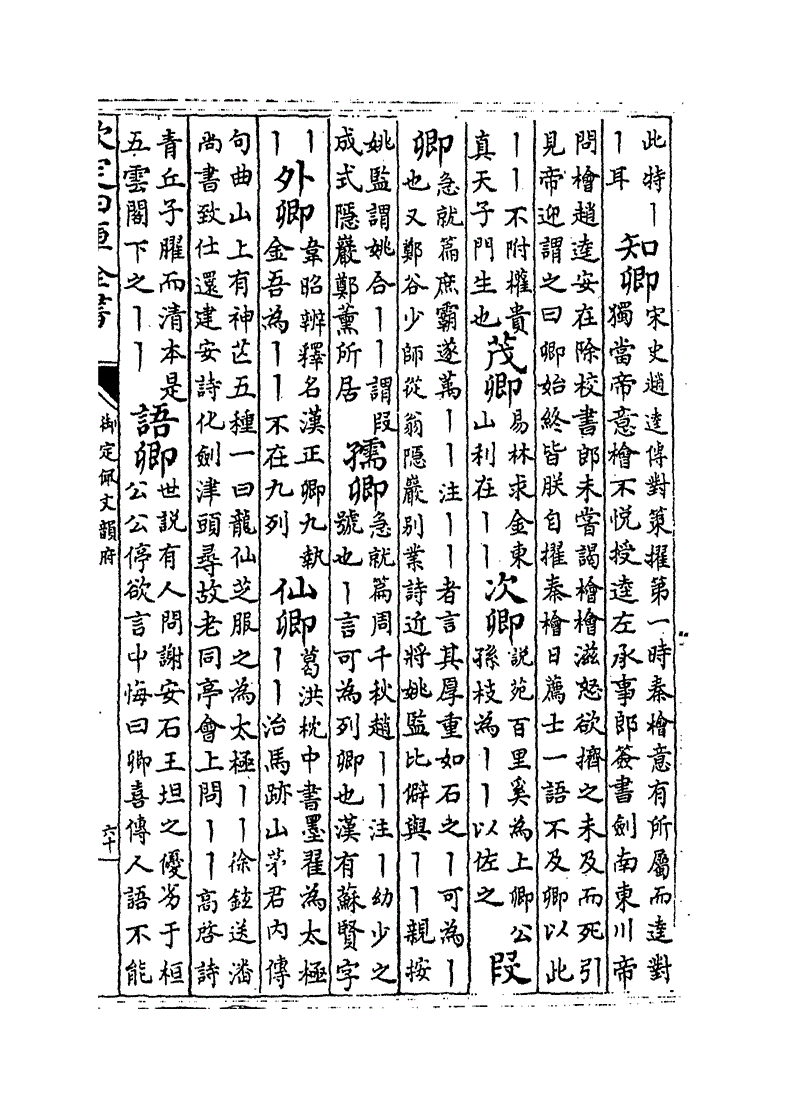 此特｜
｜耳
知卿
宋史趙逵傳對策擢第一時秦檜意有所屬而逵對
獨當帝意檜不悅授逵左承事郎簽書劍南東川帝
問檜趙逵安在除校書郎未嘗謁檜檜滋怒欲擠之未及而死引
見帝迎謂之曰卿始終皆朕自擢秦檜日薦士一語不及卿以此
｜｜不附權貴
真天子門生也
茂卿
易林求金東
山利在｜｜
次卿
説苑百里奚為上卿公
孫枝為｜｜以佐之
段
卿
急就篇庶霸遂萬｜｜注｜｜者言其厚重如石之｜可為｜
也又鄭谷少師從翁隱巖别業詩近將姚監比僻與｜｜親按
姚監謂姚合｜｜謂段
成式隱巖鄭薰所居
孺卿
急就篇周千秋趙｜｜注｜幼少之
號也｜言可為列卿也漢有蘇賢字
｜
｜
外卿
韋昭辨釋名漢正卿九執
金吾為｜｜不在九列
仙卿
葛洪枕中書墨翟為太極
｜｜治馬跡山茅君内傳
句曲山上有神芝五種一曰龍仙芝服之為太極｜｜徐鉉送潘
尚書致仕還建安詩化劍津頭尋故老同亭會上問｜｜高啓詩
青丘子臞而清本是
五雲閣下之｜｜
語卿
世説有人問謝安石王坦之優劣于桓
公公停欲言中悔曰卿喜傳人語不能
欽定四庫全書
御定佩文韻府
六十